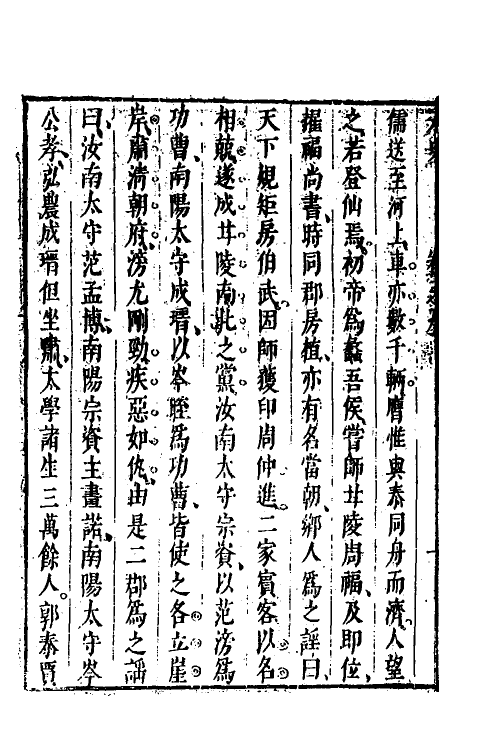 儒送至河上車亦數千輌膺惟與泰同舟而濟人望
之若登仙焉初帝為蠡吾侯嘗師甘陵周福及即位
擢福尚書時同郡房植亦有名當朝鄉人為之謡曰
天下規矩房伯武因師獲印周仲進二家賓客以名
相競遂成甘陵南北之黨汝南太守宗資以范滂為
功曹南陽太守成瑨以岑晊為功曹皆使之各立崖
岸肅清朝府滂尤剛勁疾惡如仇由是二郡為之謡
曰汝南太守范孟博南陽宗資主畫諾南陽太守岑
公孝弘農成瑨但坐嘯太學諸生三萬餘人郭泰賈